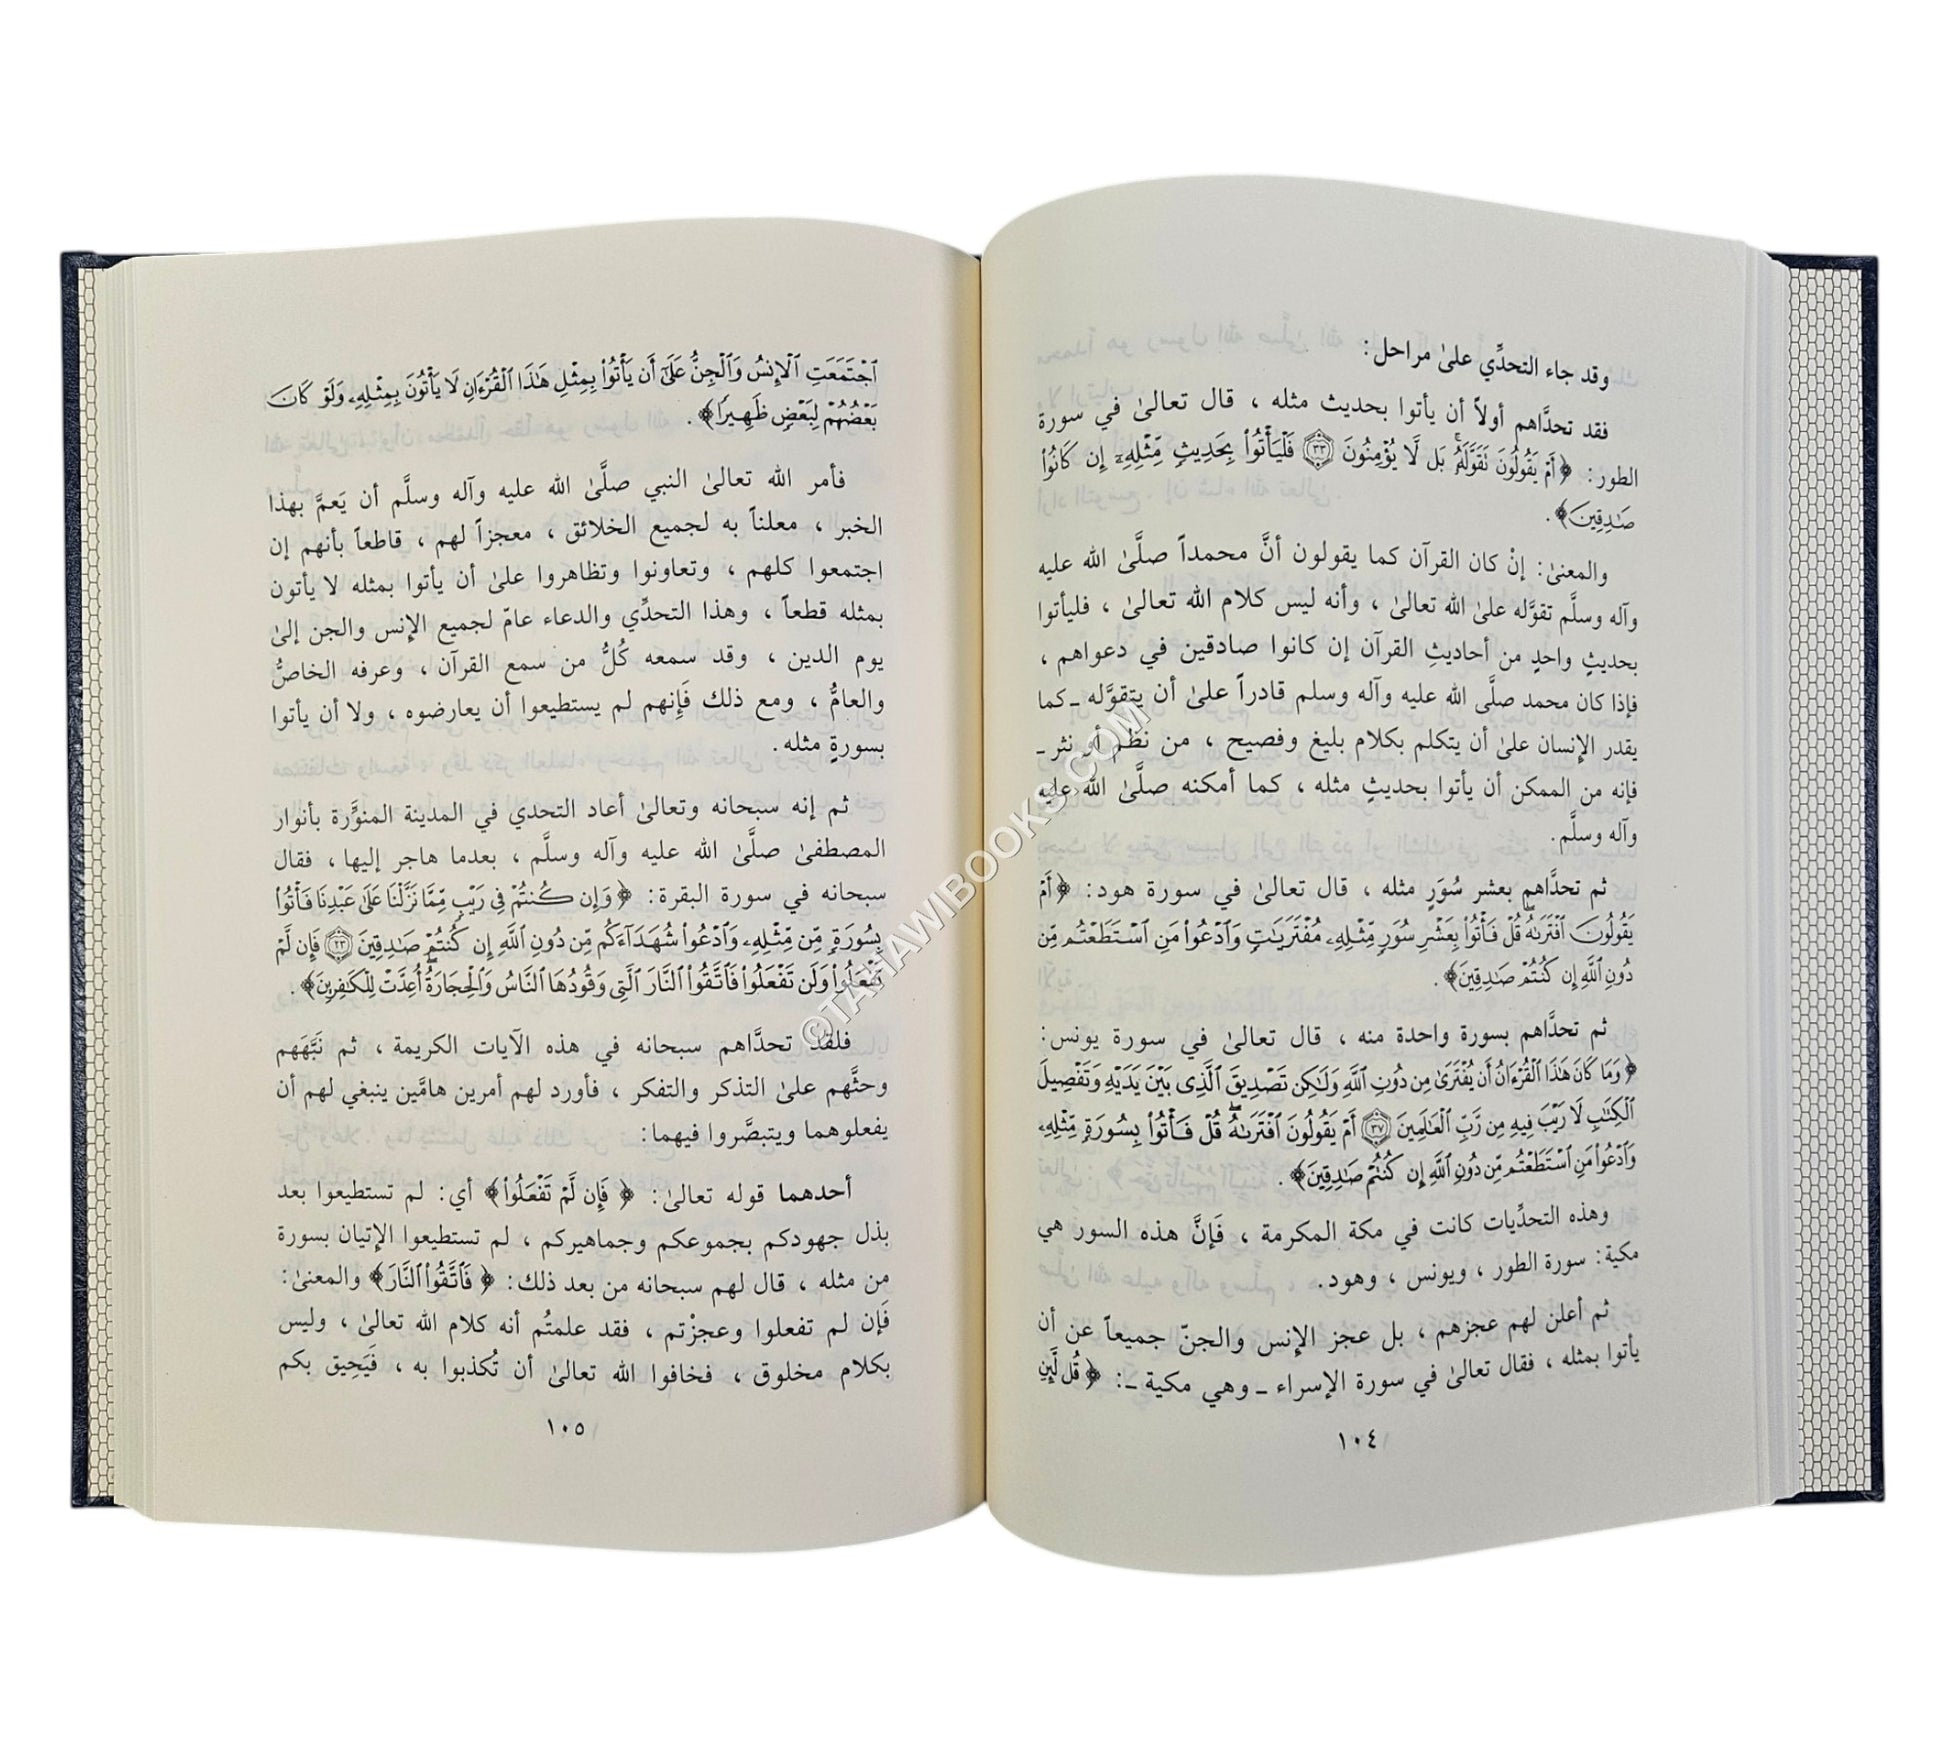 وقد جاء التحدِّي علىٰ مراحل:
فقد تحدَّاهم أولاً أن يأتوا بحديث مثله ، قال تعالىٰ في سورة
الطور: ﴿أَمْ يَقُولُونَ نَقَوَّلَهُۥ بَل لَّا يُؤْمِنُونَ ٣٣ فَلْيَأْتُوا۟ بِحَدِيثٍ مِّثْلِهِۦٓ إِن كَانُوا۟
صَـٰدِقِينَ﴾.
والمعنىٰ: إنْ كان القرآن كما يقولون أنَّ محمداً صلَّىٰ الله عليه
وآله وسلَّم تقوَّله علىٰ الله تعالىٰ ، وأنه ليس كلام الله تعالىٰ ، فليأتوا
بحديثٍ واحدٍ من أحاديثِ القرآن إن كانوا صادقين في دعواهم ،
فإذا كان محمد صلَّى الله عليه وآله وسلم قادراً علىٰ أن يتقوَّله ـ كما
يقدر الإنسان علىٰ أن يتكلم بكلام بليغ وفصيح ، من نظم أو نثر ـ
فإنه من الممكن أن يأتوا بحديثٍ مثله ، كما أمكنه صلَّىٰ الله عليه
وآله وسلَّم.
ثم تحدَّاهم بعشر سُوَرٍ مثله ، قال تعالىٰ في سورة هود: ﴿أَمْ
يَقُولُونَ ٱفْتَرَىٰهُ قُلْ فَأْتُوا۟ بِعَشْرِ سُوَرٍ مِّثْلِهِۦ مُفْتَرَيَـٰتٍ وَٱدْعُوا۟ مَنِ ٱسْتَطَعْتُم مِّن
دُونِ ٱللَّهِ إِن كُنتُمْ صَـٰدِقِينَ﴾.
ثم تحدَّاهم بسورة واحدة منه ، قال تعالىٰ في سورة يونس:
﴿وَمَا كَانَ هَـٰذَا ٱلْقُرْءَانُ أَن يُفْتَرَىٰ مِن دُونِ ٱللَّهِ وَلَـٰكِن تَصْدِيقَ ٱلَّذِى بَيْنَ يَدَيْهِ وَتَفْصِيلَ
ٱلْكِتَـٰبِ لَا رَيْبَ فِيهِ مِن رَّبِّ ٱلْعَـٰلَمِينَ ٣٧ أَمْ يَقُولُونَ ٱفْتَرَىٰهُ قُلْ فَأْتُوا۟ بِسُورَةٍ مِّثْلِهِۦ
وَٱدْعُوا۟ مَنِ ٱسْتَطَعْتُم مِّن دُونِ ٱللَّهِ إِن كُنتُمْ صَـٰدِقِينَ﴾.
وهذه التحدِّيات كانت في مكة المكرمة ، فَإنَّ هذه السور هي
مكية: سورة الطور ، ويونس ، وهود.
ثم أعلن لهم عجزهم ، بل عجز الإنس والجنّ جميعاً عن أن
يأتوا بمثله ، فقال تعالىٰ في سورة الإسراء ـ وهي مكية ـ: ﴿قُل لَّئِنِ
١٠٤
ٱجْتَمَعَتِ ٱلْإِنسُ وَٱلْجِنُّ عَلَىٰٓ أَن يَأْتُوا۟ بِمِثْلِ هَـٰذَا ٱلْقُرْءَانِ لَا يَأْتُونَ بِمِثْلِهِۦ وَلَوْ كَانَ
بَعْضُهُمْ لِبَعْضٍ ظَهِيرًا﴾.
فأمر الله تعالىٰ النبي صلَّىٰ الله عليه وآله وسلَّم أن يَعمَّ بهذا
الخبر ، معلناً به لجميع الخلائق ، معجزاً لهم ، قاطعاً بأنهم إن
اجتمعوا كلهم ، وتعاونوا وتظاهروا علىٰ أن يأتوا بمثله لا يأتون
بمثله قطعاً ، وهذا التحدِّي والدعاء عامّ لجميع الإنس والجن إلىٰ
يوم الدين ، وقد سمعه كُلُّ من سمع القرآن ، وعرفه الخاصُّ
والعامُّ ، ومع ذلك فَإنهم لم يستطيعوا أن يعارضوه ، ولا أن يأتوا
بسورةٍ مثله.
ثم إنه سبحانه وتعالىٰ أعاد التحدي في المدينة المنوَّرة بأنوار
المصطفىٰ صلَّىٰ الله عليه وآله وسلَّم ، بعدما هاجر إليها ، فقال
سبحانه في سورة البقرة: ﴿وَإِن كُنتُمْ فِى رَيْبٍ مِّمَّا نَزَّلْنَا عَلَىٰ عَبْدِنَا فَأْتُوا۟
بِسُورَةٍ مِّن مِّثْلِهِۦ وَٱدْعُوا۟ شُهَدَآءَكُم مِّن دُونِ ٱللَّهِ إِن كُنتُمْ صَـٰدِقِينَ ٢٣ فَإِن لَّمْ
تَفْعَلُوا۟ وَلَن تَفْعَلُوا۟ فَٱتَّقُوا۟ ٱلنَّارَ ٱلَّتِى وَقُودُهَا ٱلنَّاسُ وَٱلْحِجَارَةُ أُعِدَّتْ لِلْكَـٰفِرِينَ﴾.
فلقد تحدَّاهم سبحانه في هذه الآيات الكريمة ، ثم نَبَّهَهم
وحثَّهم علىٰ التذكر والتفكر ، فأورد لهم أمرين هامَّين ينبغي لهم أن
يفعلوهما ويتبصَّروا فيهما:
أحدهما قوله تعالىٰ: ﴿فَإِن لَّمْ تَفْعَلُوا۟﴾ أي: لم تستطيعوا بعد
بذل جهودكم بجموعكم وجماهيركم ، لم تستطيعوا الإتيان بسورة
من مثله ، قال لهم سبحانه من بعد ذلك: ﴿فَٱتَّقُوا۟ ٱلنَّارَ﴾ والمعنىٰ:
فَإن لم تفعلوا وعجزْتم ، فقد علمتُم أنه كلام الله تعالىٰ ، وليس
بكلام مخلوق ، فخافوا الله تعالىٰ أن تُكذبوا به ، فَيَحِيق بكم
١٠٥
©TAHAWIBOOKS.COM